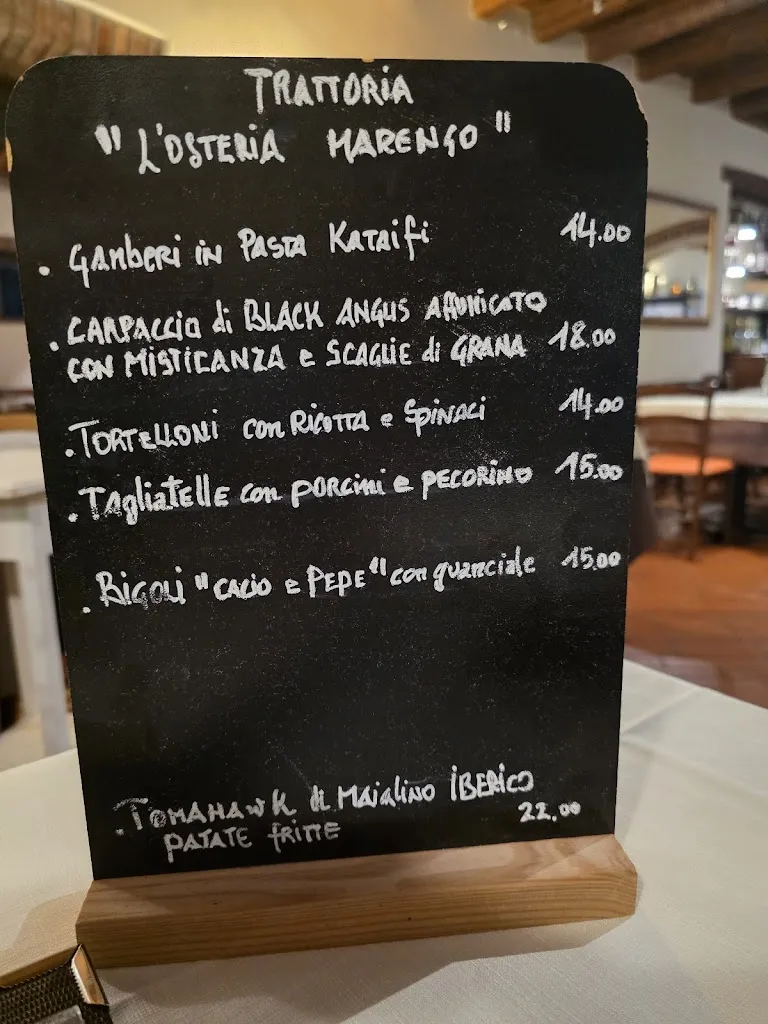 TRATTORIA
"L'OSTERIA MARENGO"
. GAMBERI in PASTA KATAIFI 14.00
. CARPACCIO di BLACK ANGUS AFFUMICATO
CON MISTICANZA e SCAGLIE di GRANA 18.00
. TORTELLONI con RICOTTA e SPINACI 14.00
. TAgliATELLE con PORCINI e PECORINO 15.00
. BIGOLI "CACIO e PEPE" con guanciale 15.00
. TOMAHAWK di MAIALINO IBERICO
PATATE FRITTE 22.00